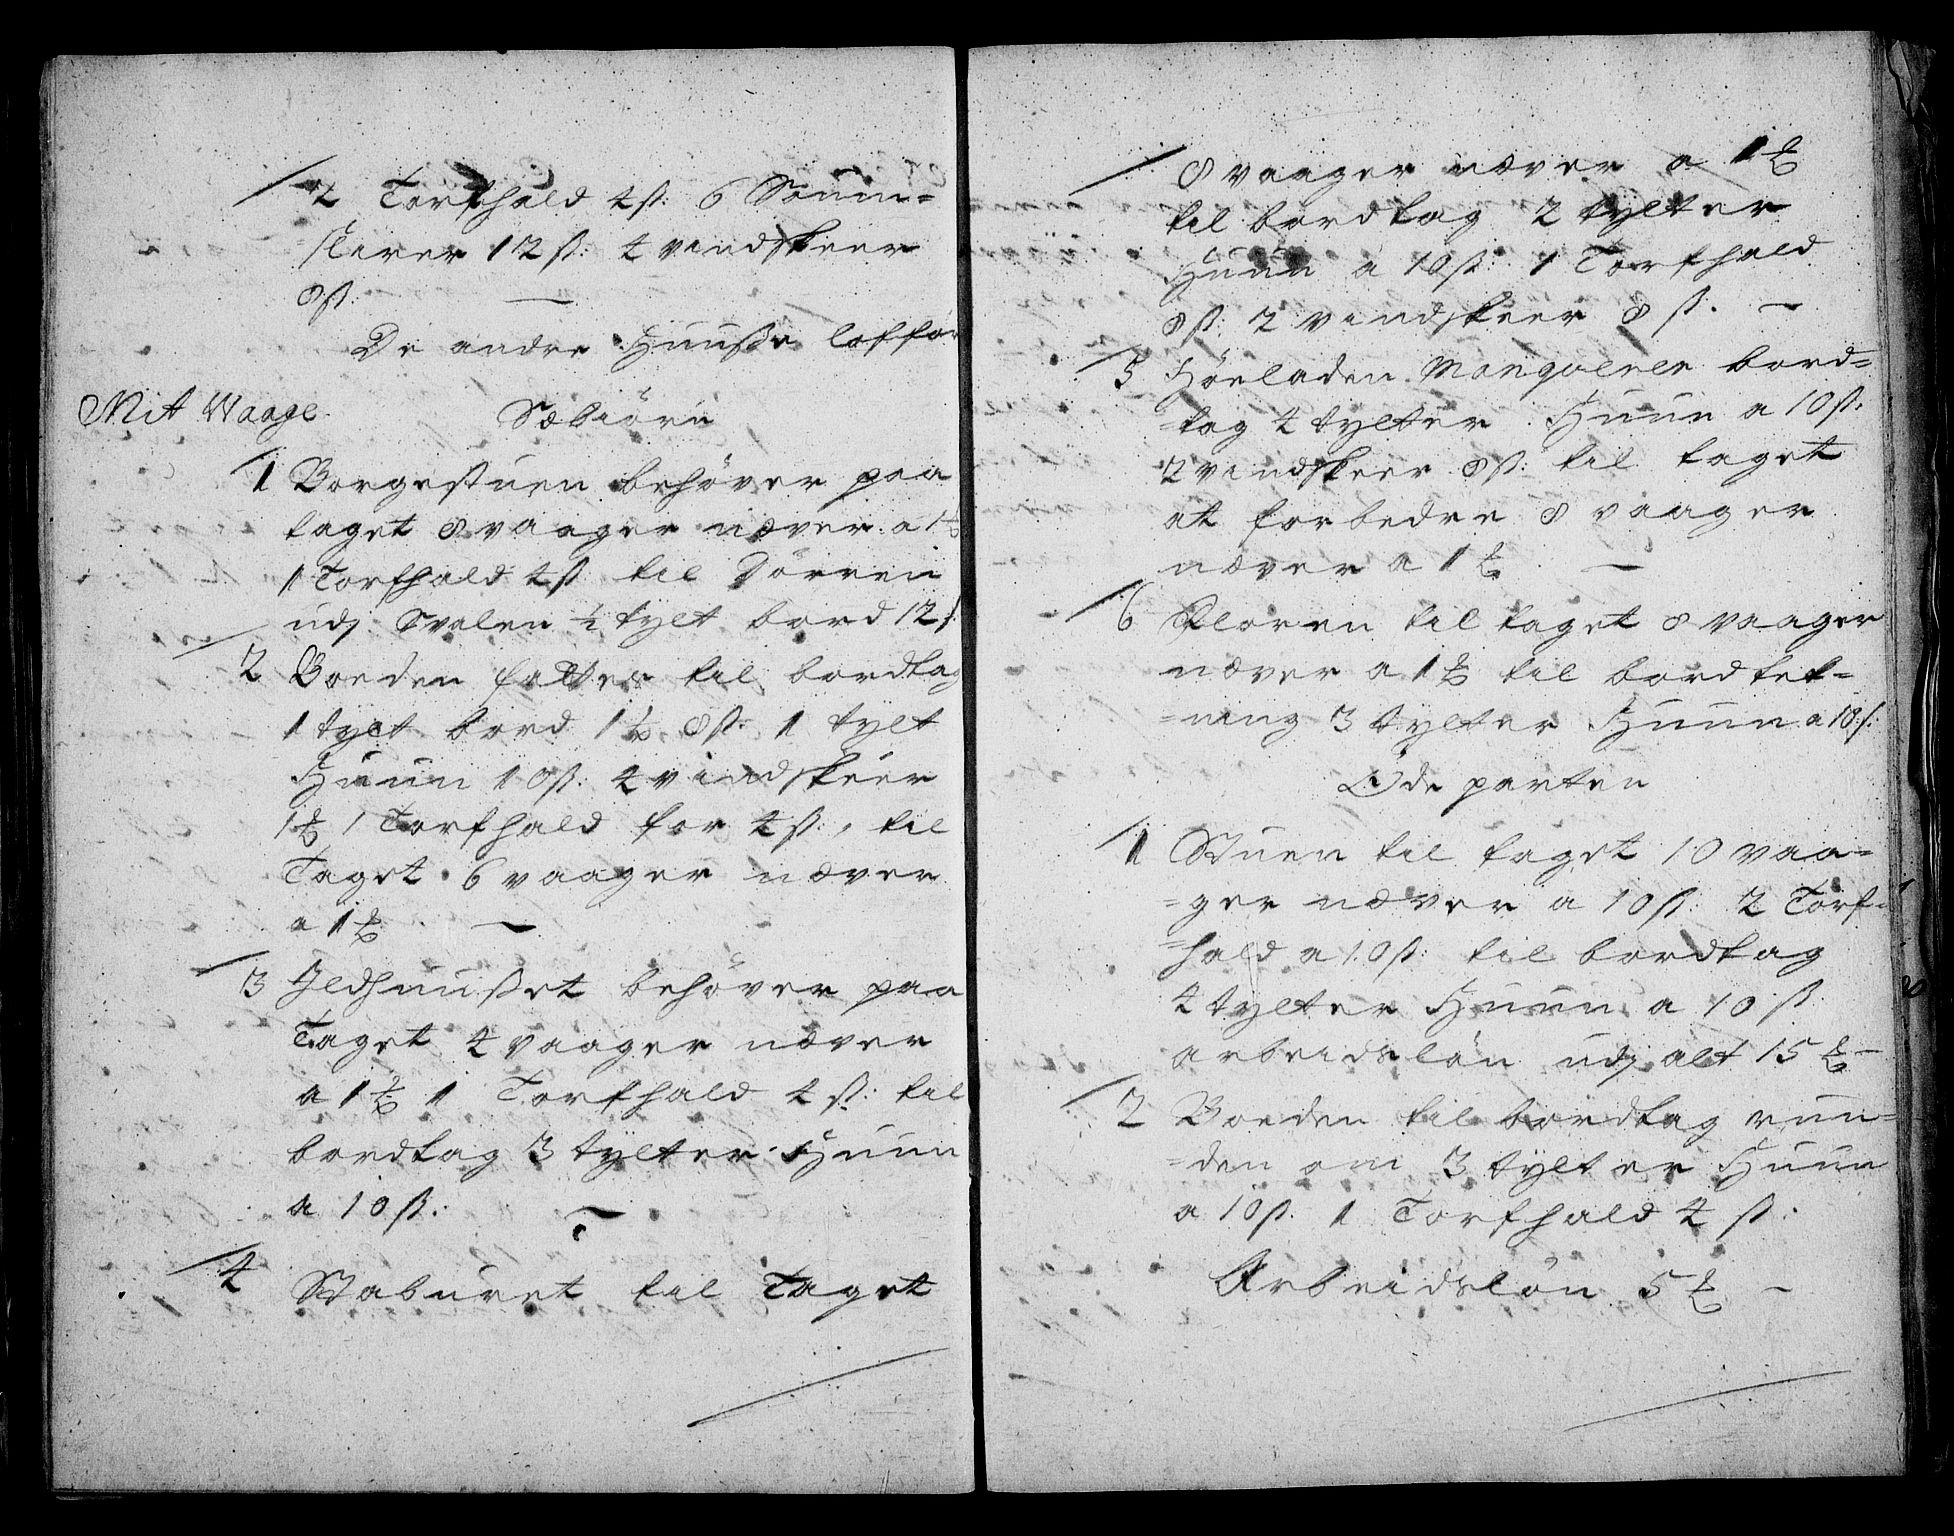 2 Torfhald 4 ß: 6 Souun=
slirer 12 ß: 4 vindskeer
8 ß:
De andre Huuße loffor
Mit Waage. Sæbiörn
1 Borgestuen behöver paa
taget 8 vaager næver a 1 ℔
1 Torfhald 4 ß til Dörren
udj Svalen ½ tylt bord 12 ß
2 Boeden fattes til bordtag
1 tylt bord 1 ℔ 8 ß: 1 tylt
Huun 10 ß: 4 vindskeer
1 ℔ 1 Torfhald for 4 ß:, til
Taget 6 vaager næver
a 1 ℔
3 Jldhuußet behöver paa
Taget 4 vaager næver
a 1 ℔ 1 Torfhald 4 ß: til
bordtag 3 tylter Huun
a 10 ß:
4 Staburet til Taget
8 vaager næver a 1 ℔
til bordtag 2 tylter
Huun a 10 ß: 1 Torfhald
8 ß: 2 vindskeer 8 ß:
5 Höeladen Manqverer bord=
=tag 4 tylter Huun a 10 ß:
2 vindskeer 8 ß: til taget
at forbedre 8 vaager
næver a 1 ℔
6 Floren til taget 8 vaager
næver a 1 ℔ til bordtet=
=ning 3 tylter Huun a 10 ß:
Öde parten
1 Stuen til taget 10 vaa=
=ger næver a 10 ß: 2 Torf=
=hald a 10 ß: til bordtag
4 tylter Huun a 10 ß
arbeidslön udj alt 15 ℔
2 Boeden til bordtag run=
=den om 3 tylter Huun
a 10 ß. 1 Torfhald 4 ß:
Arbeidslön 5 ℔